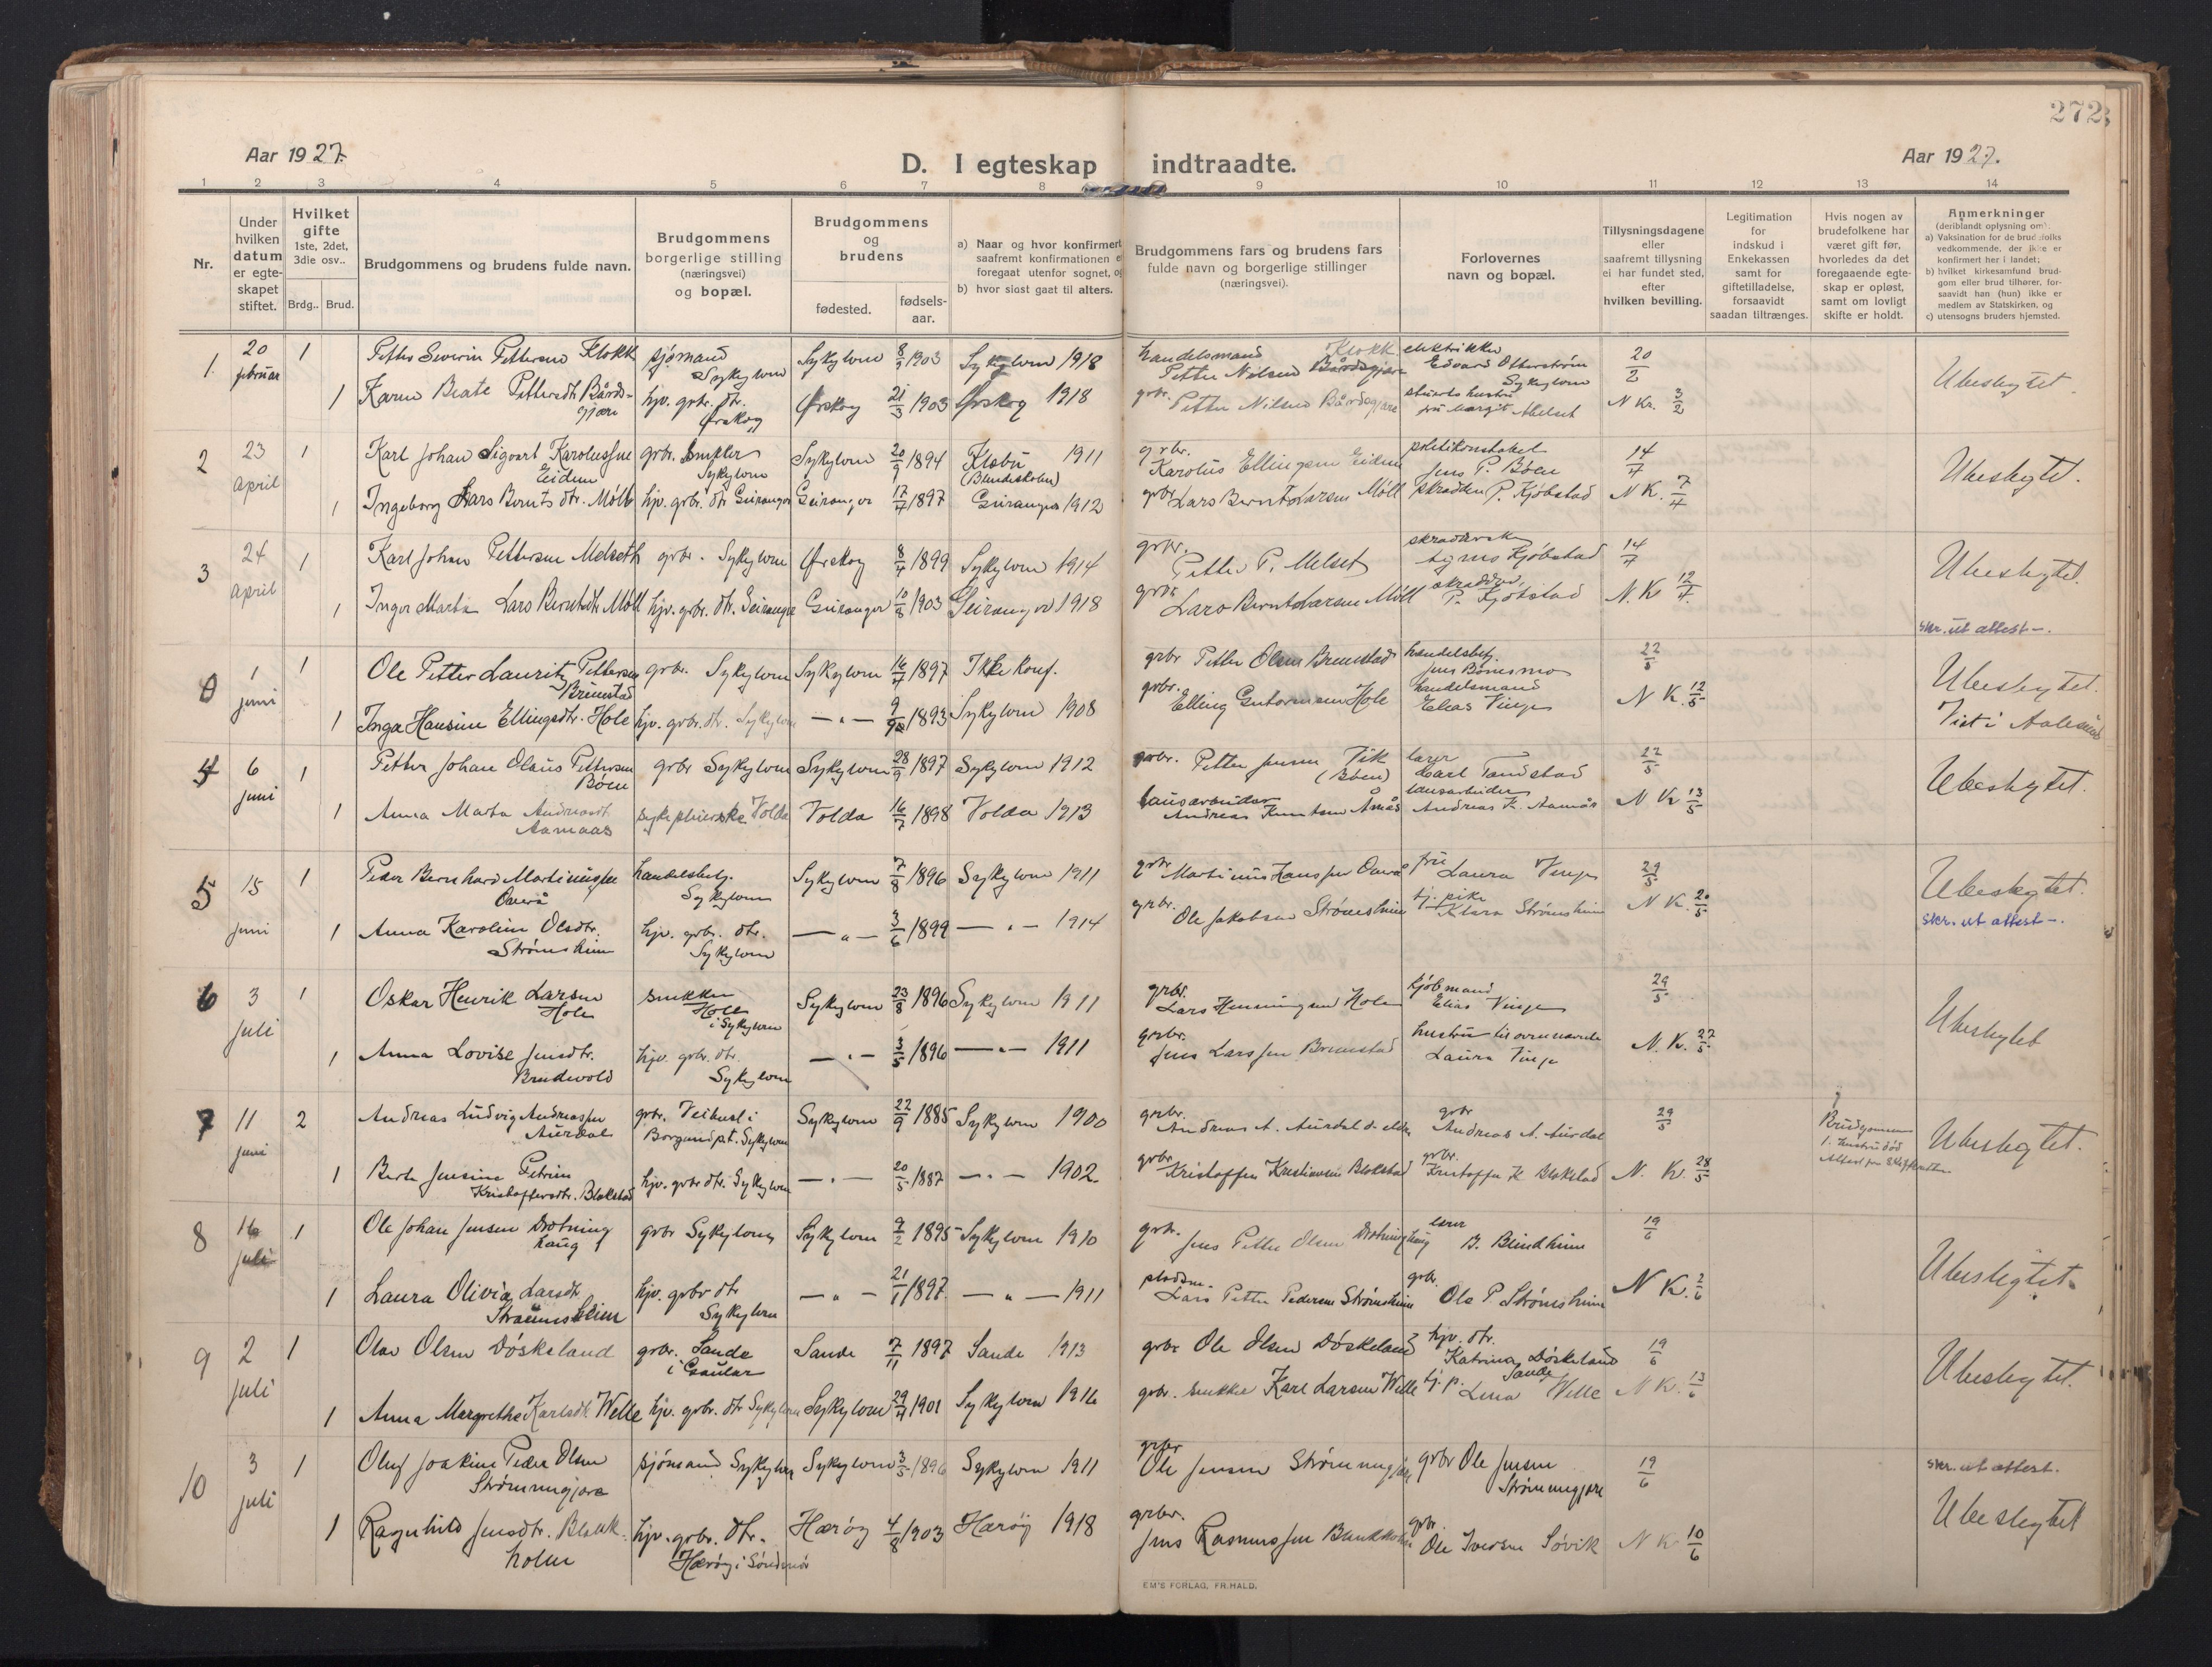 272
Aar 1927.
D. I egteskap indtraadte.
Aar 1927.
1 2 3 4 5 6 7 8 9 10 11 12 13 14
Nr.
Under hvilken datum er egteskapet stiftet.
Hvilket gifte
1ste, 2det, 3die osv..
Brdg.. Brud.
Brudgommens og brudens fulde navn.
Brudgommens borgerlige stilling (næringsvei) og bopæl.
Brudgommens og brudens
fødested.
fødsels-aar.
a) Naar og hvor konfirmert
saafremt konfirmationen e
foregaat utenfor sognet, og
b) hvor sidst gaat til alters.
Brudgommens fars og brudens fars
fulde navn og borgerlige stillinger
(næringsvei).
Forlovernes
navn og bopæl.
Tillysningsdagene
eller
saafremt tillysning
ei har fundet sted,
efter
hvilken bevilling.
Legitimation
for
indskud i
Enkekassen
samt for
giftetilladelse,
forsaavidt
saadan tiltrænges.
Hvis nogen av
brudefolkene har
været gift før,
hvorledes da det
foregaaende egte-
skap er opløst,
samt om lovligt
skifte er holdt.
Anmerkninger
(deriblandt oplysning om):
a) Vaksination for de brudefolks
vedkommende, der ikke er
konfirmert her i landet;
b) hvilket kirkesamfund brud-
gom eller brud tilhører, for-
saavidt han (hun) ikke er
medlem av Statskirken, og
c) utensogns bruders hjemsted.
1. 20 februar 1 Petter Severin Pettersen Klokk sjømand Sykylven Sykylven 8 1903 Sykylven 1918 handelsmand Petter Nilsen Klokk elektriker Edvard Otterstrøm Sykylven 20/2 Ubeslegtet.
1 Karen Beate Pettersdtr. Bårdsgjære hjv. grbr. dtr. Ørskog Ørskog 21/3 1903 Ørskog 1918 grbr. Petter Nilsen Bårdsgjære fru Margit N Kr. 3/2
2 23 april 1 Karl Johan Sigvart Karolussen Eidem grbr. Snekker Sykylven Sykylven 20 1894 Klæbu (Blindeskolen) 1911 grbr. Karolus Ellingsen Eidem politikonstabel Jens P. Bøen 14/4 Ubeslegtet.
1 Ingeborg Lars Bernts dtr. Møll hjv. grbr. dtr. Geiranger Geiranger 17/4 1897 Geiranger 1912 grbr. Lars Bernt Larsen Møll skrædder P. Kjøbstad N K. 7/4
3 24 april 1 Karl Johan Pettersen Melseth grbr. Sykylven Ørskog 8/4 1899 Sykylven 1914 grbr. Petter P. Melset Agnes Kjøbstad 14/4 Ubeslegtet.
1 Inger Marta Lars Berntsdtr Møll hjv. grbr. dtr. Geiranger Geiranger 10 1903 Geiranger 1918 grbr. Lars Bernt Larsen Møll skrædder P. Kjøbstad N. Kr 12/4
skr. ut attest -.
1 juni 1 Ole Petter Lauritz Pettersen Brunstad grbr. Sykylven Sykylven 16/4 1897 Ikke konf. grbr Petter Olsen Brunstad handelsbetj. Jens Bonesmo 22/5 Ubeslegtet.
1 Inga Hansine Ellingsdtr. Hole hjv. grbr. dtr. Sykylven — " — 9 1893 Sykylven 1908 grbr. Elling Guttormsen Hole handelsmand Elias Vinje N K. 12/5 Viet i Aalesund
4 6 juni 1 Petter Johan Olaus Pettersen Bøen grbr Sykylven Sykylven 28/9 1897 Sykylven 1912 grbr. Petter Jensen Vik (Bøen) lærer Carl Tandstad 22/5 Ubeslegtet.
1 Anna Marta Andreasdt Aamaas sykepleierske Volda Volda 16/7 1898 Volda 1913 Andreas Knutsen Åmås Andreas K. Aamås N Kr 13/5
5 15 juni 1 Peder Bernhard Martinussen Overå handelsbetj. Sykylven Sykylven 7/8 1896 Sykylven 1911 grbr Martinus Hanssen Overå fru Laura Vinje 29/5 Ubeslegtet.
1 Anna Karoline Olsdtr. Strømsheim hjv. grbr. dtr. Sykylven — " — 3/6 1899 — " — 1914 grbr. Ole Jakobsen Strømsheim tj. pike Klara Strømsheim N K. 20/5 skr. ut attest -.
6 3 juli 1 Oskar Henrik Larsen Hole snekker Hole i Sykylven Sykylven 23/8 1896 Sykylven 1911 grbr. Lars Henningsen Hole kjøbmand Elias Vinje 29/5 Ubeslegtet
1 Anna Lovise Jensdtr. Brudevold hjv. grbr. dtr. Sykylven — " — 3/5 1896 — " — 1911 grbr. Jens Larssen Brunstad hustru til ovennævnte Laura Vinje N. K. 27/5
7 11 juni 2 Andreas Ludvig Andreassen Aurdal grbr. Veihust i Borgund p.t. Sykylven Sykylven 22/9 1885 Sykylven 1900 grbr. Andreas A. Aurdal d. eldre grbr Andreas A. Aurdal 29/5 Brudgommen 1. hustru død Ubeslegtet.
1 Berte Jensine Petrine Kristoffersdtr. Blakstad hjv. grbr dtr. Sykylven — " — 20/5 1887 — " — 1902 grbr Kristoffer Kristiansen Blakstad grbr. Kristoffer K Blakstad N. K. 28/5
8 16 juli 1 Ole Johan Jensen Drotninghaug grbr Sykylven Sykylven 9/2 1895 Sykylven 1910 grbr. Jens Petter Olsen Drotninghaug lærer B. Blindheim 19/6 Ubeslegtet.
1 Laura Olivia Larsdtr Straumsheim hjv. grbr dtr Sykylven — " — 21/1 1897 — " — 1911 pladsm. Lars Petter Pedersen Strømsheim grbr. Ole P Strømsheim N K. 2/6
9 2 juli 1 Olav Olsen Døskeland grbr. Sande i Gaular Sande 7/11 1897 Sande 1913 grbr Ole Olsen Døskeland hjv. dtr. Katrina Døskeland Sande 19/6 Ubeslegtet.
1 Anna Margrethe Karlsdtr Welle hjv. grbr. dtr Sykylven Sykylven 29/4 1901 Sykylven 1916 grbr. snekker Karl Larsen Welle tj. p. Lena Welle N K. 13/6
10 3 juli 1 Oluf Joakim Peder Olsen Strømmegjære sjømand Sykylven Sykylven 3/5 1896 Sykylven 1911 grbr Ole Jensen Strømmegjære grbr Ole Jensen Strømmegjære 19/6 skr. ut attest.
1 Ragnhild Jensdtr. Blankholm hjv. grbr. dtr. Harøy i Søndmør Harøy 4/8 1903 Harøy 1918 grbr. Jens Rasmussen Blankholm grbr. Ole Iversen Søvik N K 10/6 Ubeslegtet
EM'S FORLAG, FR. HALD.